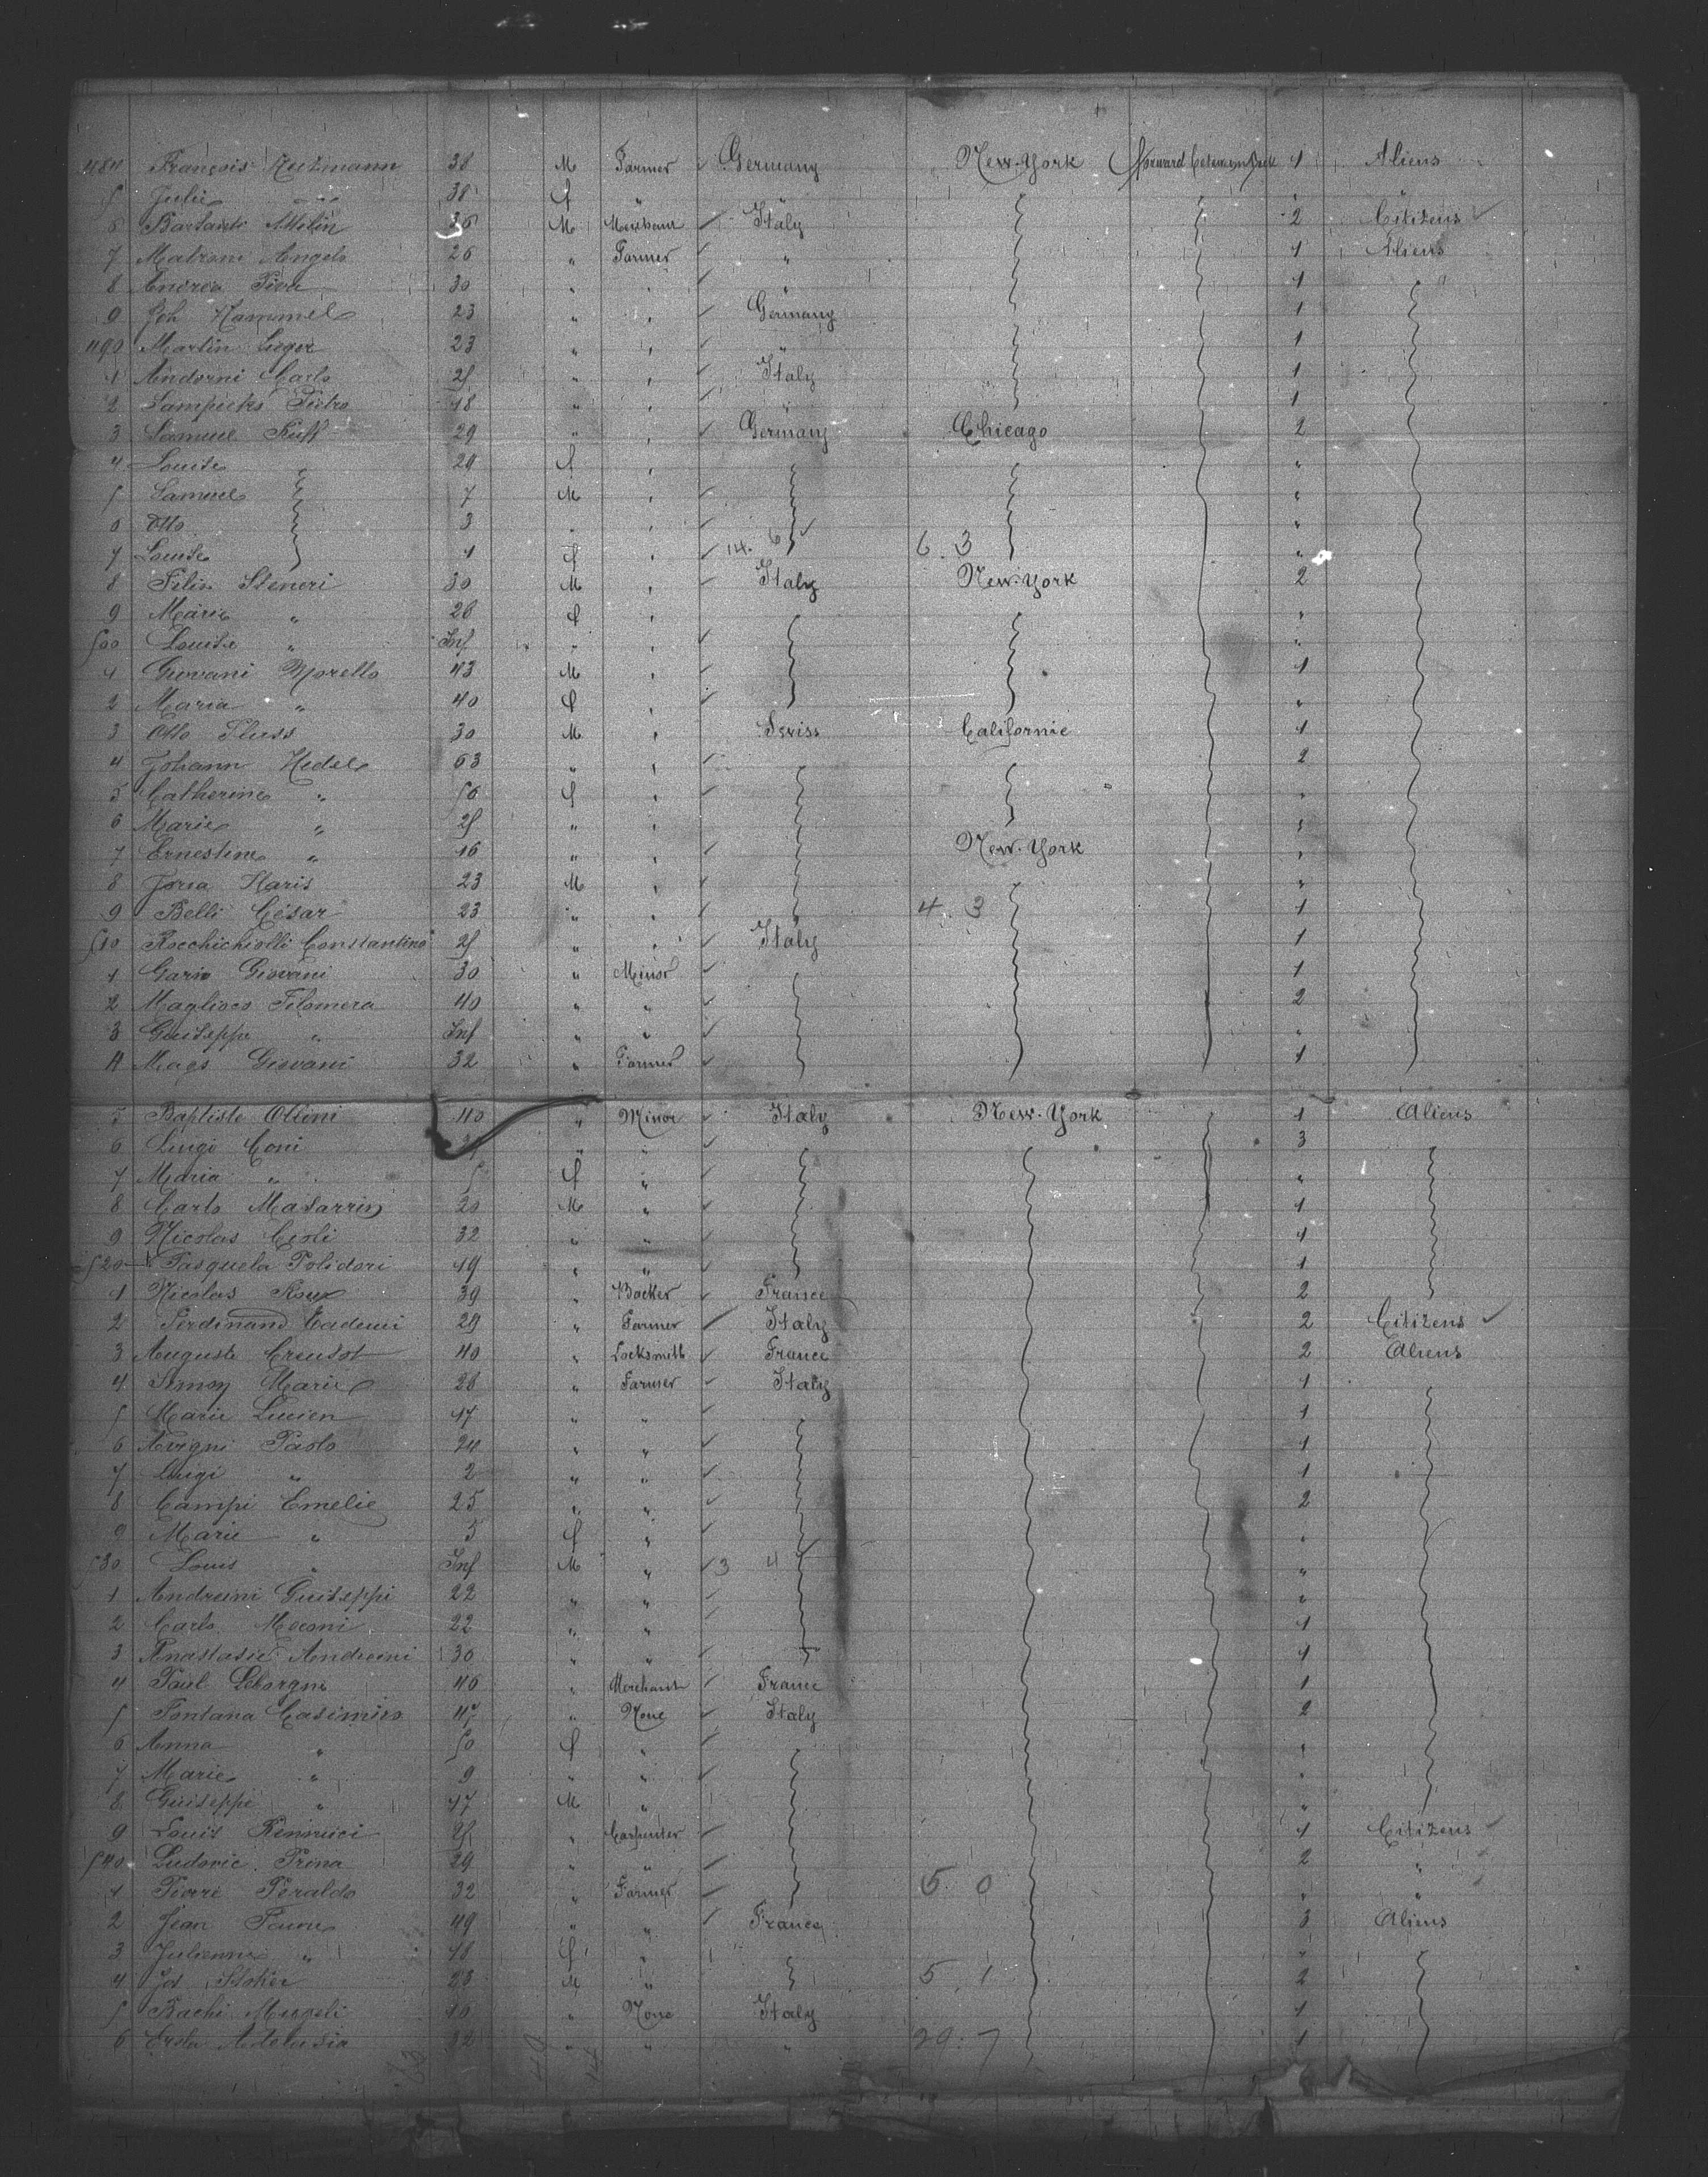 484 François 38 M Farmer Germany New-York Forward between Deck 1 Aliens
5 Julie " 38 f " " "
6 36 M Merchant Italy 2 Citizens
7 Matroni Angelo 26 " Farmer " 1 Aliens
8 Andrea 30 " " " 1 "
9 Joh Hammel 23 " " Germany 1
490 Martin 23 " " " 1
1 Andorni Carlo 25 " " Italy 1
2 Pietro 18 " " " 1
3 Samuel Ruff 29 " " Germany Chicago 2
4 Louise 29 f " "
5 Samuel 7 M " "
6 Otto 3 " " "
7 Louise 1 f " 14. 6 6. 3 "
8 Steneri 30 M " Italy New-York 2
9 Marie " 26 f " "
500 Louise " Inf " " "
1 Giovani Morello 43 M " 1
2 Maria " 40 f " "
3 Otto Fluss 30 M " Swiss Californie 1
4 Johann Hedel 63 " " 2
5 Catherine " 56 f " "
6 Marie " 25 " " "
7 Ernestine " 16 " " New-York "
8 Haris 23 M " "
9 Belli César 23 " " 4. 3 1
510 Rocchichiolli Constantino 25 " " Italy 1
1 Garin Giovani 30 " Minor 1
2 Maglioco Filomera 40 " " 2
3 Guiseppe " Inf " " "
4 Mago Giovani 32 " Farmer 1
5 Baptiste Ollini 40 " Minor Italy New-York 1 Aliens
6 Luigi Coni " " 3
7 Maria " 5 f " "
8 Carlo Masarrin 20 M " 1
9 Nicolas Cioli 32 " " 1
520 Pasquela Polidori 19 " " 1
1 Nicolas Roux 39 " Backer France 2
2 Ferdinand 29 " Farmer Italy 2 Citizens
3 Auguste Creusot 40 " Locksmith France 2 Aliens
4 Simon Marie 28 " Farmer Italy 1
5 Marie Lucien 17 " " 1
6 Avigni Paolo 24 " " 1
7 Luigi " 2 " " 1
8 Campi Emelie 25 " " 2
9 Marie " 5 f " "
530 Louis " Inf M " 3 4 "
1 Andreini Guiseppi 22 " " "
2 Carlo Meconi 22 " " 1
3 Anastasie Andreini 30 " " 1
4 Paul Leborgne 46 " Merchant France 1
5 Fontana Casimiro 47 " None Italy 2
6 Anna " 50 f " "
7 Marie " 9 " " "
8 Guiseppe " 17 M " "
9 Louis 25 " Carpenter 1 Citizens
540 Ludovic Prina 29 " " 2 "
1 Pierre Peraldo 32 " Farmer 5. 0 " "
2 Jean 49 " " France 3 Aliens
3 Julienne " 48 f " "
4 Jos Stoker 23 M " 5 1 2
5 Bachi 40 " None Italy 1
6 32 " " " 29. 7 1